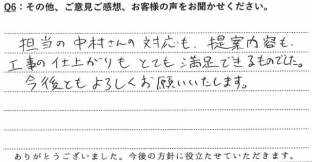 Q6：その他、ご意見ご感想、お客様の声をお聞かせください。
担当の中村さんの対応も、提案内容も、
工事の仕上がりも とても 満足できるものでした。
今後ともよろしくお願いいたします。
ありがとうございました。今後の方針に役立たせていただきます。